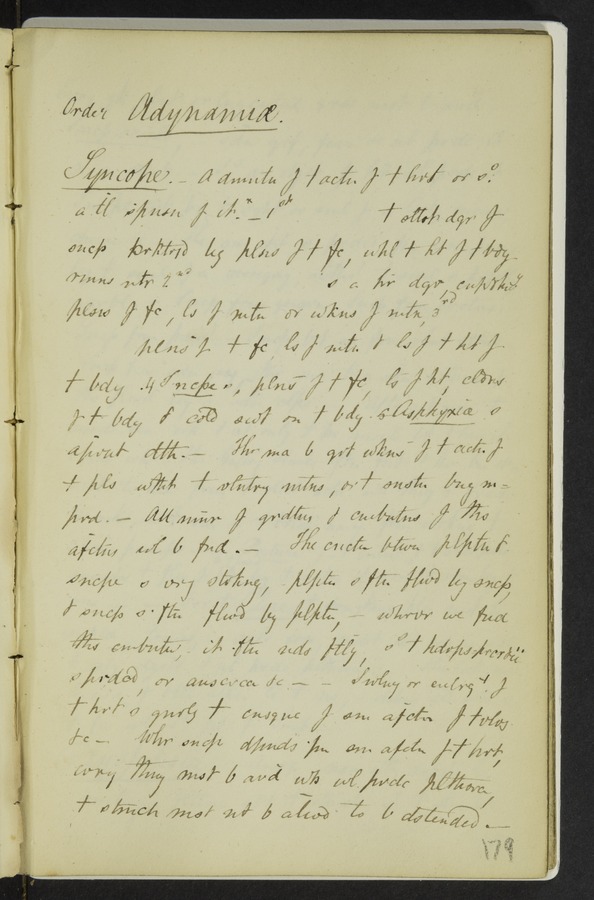 Order Adynamiæ.
Syncope. - a dmnutn f t actn f t hrt or s°.
a tl spnsn f it. - 1st t sltst dgr f
sncp is by plns f t fc, whl t ht f t bdy
rmns ntr 2nd s a hr dgr,
plns f fc, ls f mtn or wkns f mtn, 3rd
plns f t fc ls f mtn & ls f t ht f
t bdy . 4 Sncpe, plns f t fc, ls f ht, cldns
f t bdy & cold swt on t bdy. 5 Asphyxia s
aprnt dth. - Thr ma b grt wkns f t actn f
t pls wtht t vlntry mtns, or t snstn bng m=
prd. - All mnr f grdtns & cmbntns f ths
afctns wl b fnd. - The cnctn btwn plptn &
sncpe s vry strkng, plptn s ftn flwd by sncp,
& sncp s ftn flwd by plptn, - whrvr we fnd
ths cmbntn, it ftn nds ftly, s° t hdrps prcrdii
s prdcd, or & c - - Swlng or enlrgt. f
t hrt s gnrly t cnsqnc f sm afctn f t vlvs
&c - Whr sncp dpnds pn sm afctn f t hrt,
evry thng mst b avd wh wl prdc plthora,
t stmch mst nt b alwd to b dstended. -
179